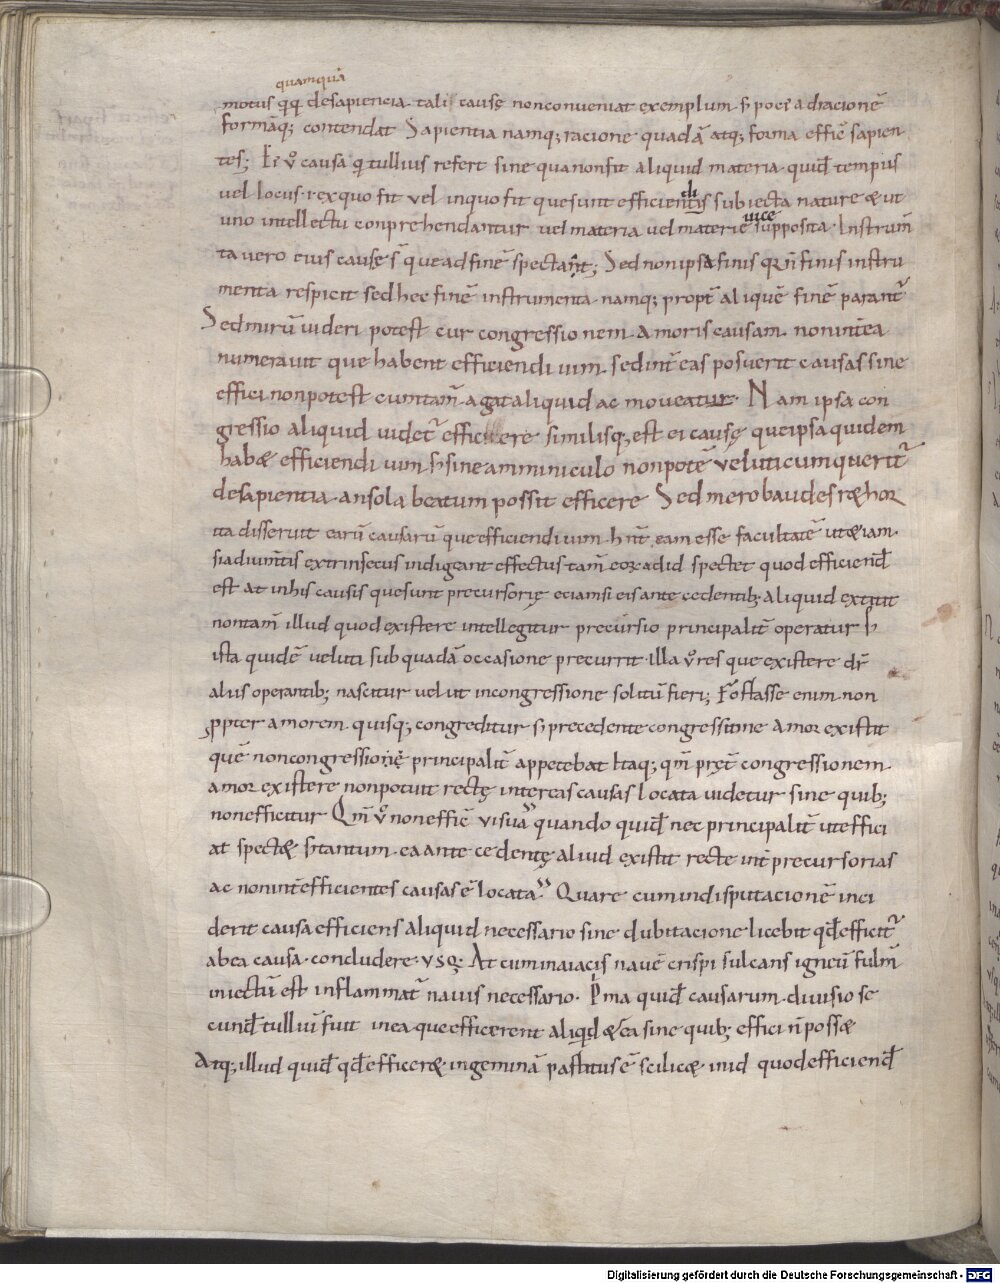 quamquā
motus qꝗ desapiencia. tali causę nonconueniat exemplum. ꝑ poci adracionē
formāq; contendat Sapientia namq; racione quadā atq; forma efficē sapien
tes; causa tullius refert sine quanonfit aliquid materia. quid̄ tempus
vel locus. rexquo fit vel inquo fit quesunt efficientis subiecta nature & ut
di
uno intellectu conprehendantur vel materia vel materie supposita. Instrum̄
uice
ta vero eius causę s̄ quead finē spectant; Sed nonipsa finis finis instru
menta respicit sed hec finē instrumenta namq; propt̄ aliquē finē parant̄
Sed mirū uideri potest cur congressionem. amoris causam. nonint̄ ea
numerauit que habent efficiendi uim. sedint̄ eas posuerit causas sine
effici nonpotest cumtam̄ agat aliquid ac moueatur. Nam ipsa con
gressio aliquid uidet̄ efficere similisq; est ei causę queipsa quidem
hab& efficiendi uim sineamminiculo nonpotē veluticumquerit̄
desapientia. ansola beatum possit efficere Sed merobaudes r&hor
ita disseruit earū causarū que efficiendi uim. hnt̄ eam esse facultatē ut&iam.
siadium̄tis extrinsecus indigeant effectus tam̄ adid spectet quod efficiend̄
est at inhis causis quesunt precursorię eciamsi eis ante cedentib; aliquid extitit
nontam̄ illud quod existere intellegitur precursio principalit̄ operatur
ista quidē veluti sub quadā occasione precurrit. illa res que existere dr̄
aliis operantib; nascitur vel ut incongressione solitū fieri; Fortasse enim non
ꝓpter amorem. quisq; congreditur precedente congressione amor existit
quē noncongressionē principalit̄ appetebat Itaq; qm̄ pręt̄ congressionem.
amor existere nonpotuit rectę intereas causas locata uidetur sine quib;
nonefficitur Qm̄ non efficē visūa quando quid̄ nec principalit̄ uteffici
at spect& tantum. ea ante cedentę aliud existit recte int̄ precursorias
ac nonint̄ efficientes causas ē locata. Quare cumindisputacionē inci
derit causa efficiens aliquid necessario sine dubitacione licebit qd̄ efficit̄
abea causa. concludere. vsq; At cum inaiacis nauē crispi sulcans igneū fulm̄
iniectū est inflammat̄ nauis necessario. Pma quid̄ causarum. diuisio se
cund̄ tulliū fuit inea queefficerent aliqd & ea sine quib; effici n̄ poss&
Atq; illud quid̄ qd̄ efficer& ingeminā partitus ē scilic& inid quodefficiend̄
Digitalisierung gefördert durch die Deutsche Forschungsgemeinschaft - DFG